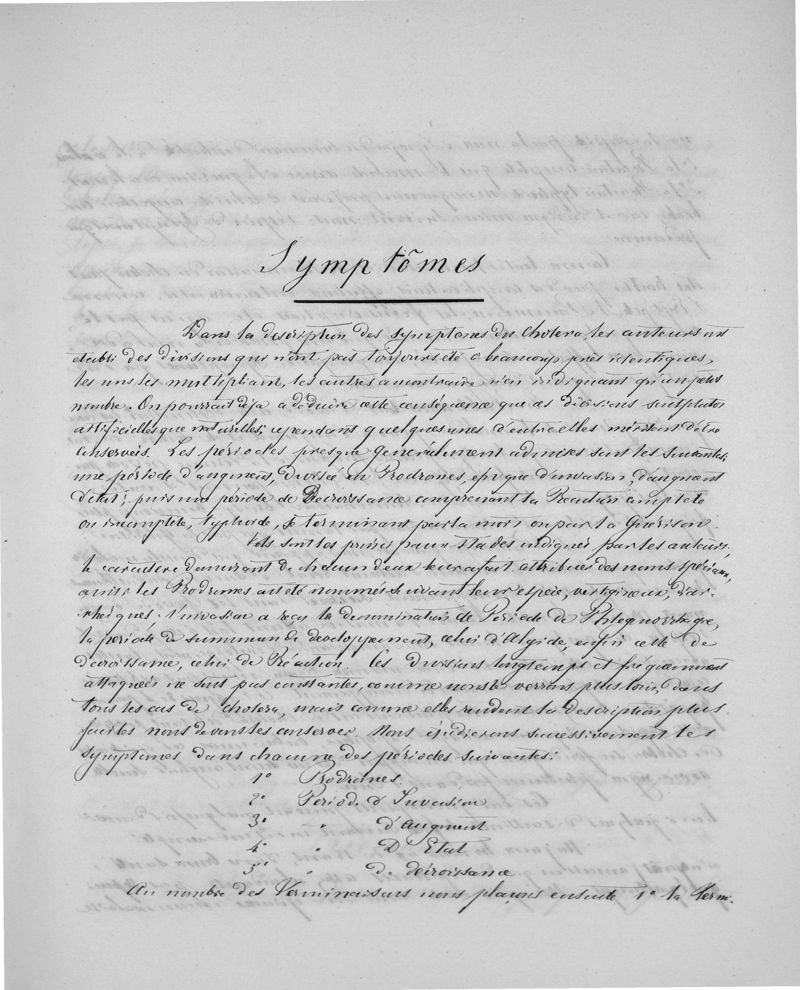 Symptômes
Dans la description des symptomes du Cholera, les auteurs ont
établi des divisions qui n'ont pas toujours été à beaucoup près identiques,
les uns les multipliant, les autres au contraire n'en indiquant qu'un petit
nombre. On pourrait déja à déduire cette conséquence que ces divisions sont plutot
artificielles que naturelles; cependant quelques unes d'entr'elles méritent d'être
conservées. Les périodes presque généralement admises sont les suivantes:
une période d'augment, divisée en Prodromes, époque d'invasion, d'augment
d'état; puis une période de Décroissance comprenant la Réaction complète
ou incomplète, typhoide, se terminant par la mort ou par la Guérison.
Tels sont les principaux stades indiqués par les auteurs,
le caractère dominant de chacun d'eux leur a fait attribuer des noms spéciaux,
ainsi les Prodromes ont été nommés suivant leur espèce, vertigineux, diar-
rhéiques. l'invasion a reçu la dénomination de Période de Phlegmorrhagie,
la periode de summum de developpement, celui d'Algide, enfin celle de
décroissance, celui de Réaction. Ces divisions longtemps et fréquemment
attaquées ne sont pas constantes, comme nous le verrons plus loin, dans
tous les cas de cholera, mais comme elles rendent la description plus
facile nous devons les conserver. Nous étudierons successivement les
symptomes dans chacune des périodes suivantes:
1º Prodromes
2º Période d'Invasion
3º " d'Augment
4º " D'Etat
5º " de décroissance
Au nombre des Terminaisons nous plaçons ensuite 1º la Term-